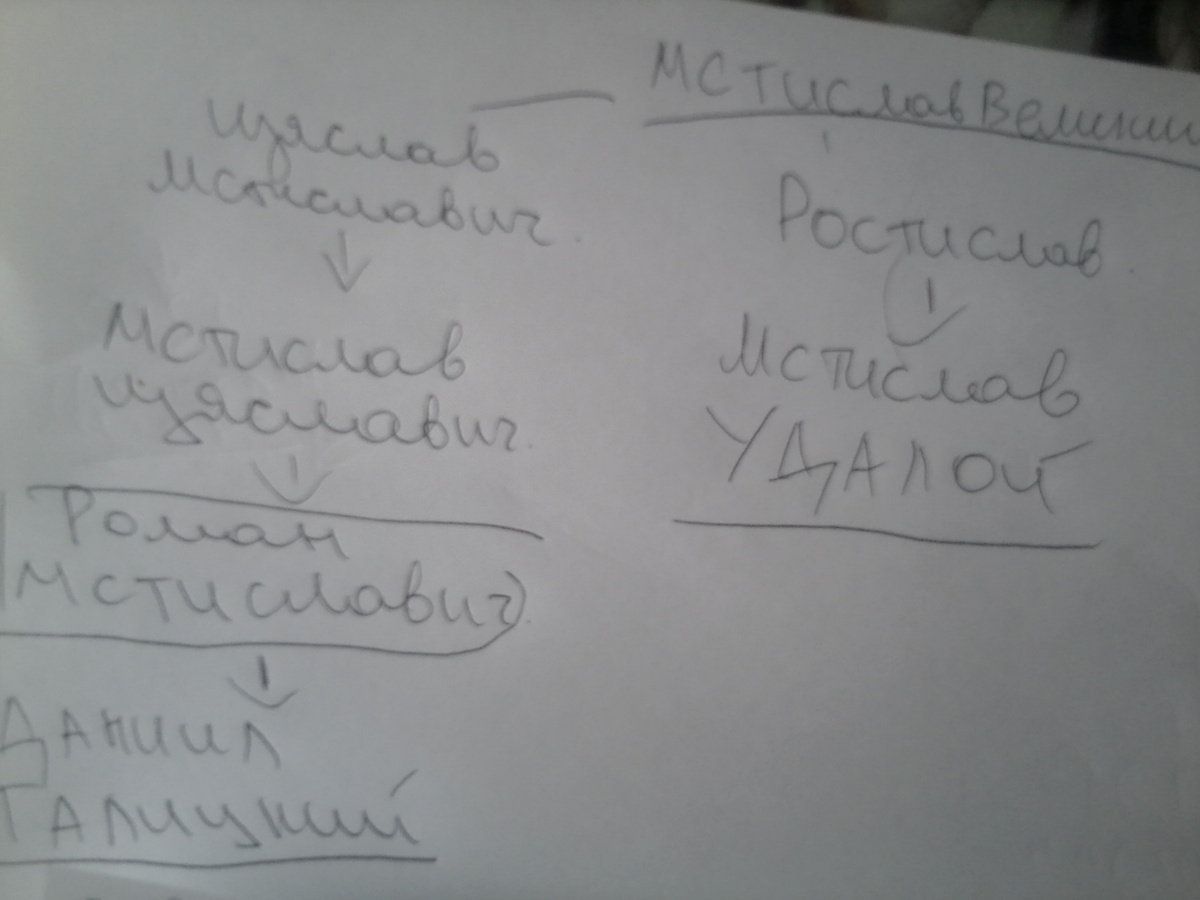 Мстислав Великий
Изяслав
Мстиславич.
Ростислав.
Мстислав
Изяславич.
Мстислав
УДАЛОЙ
Роман
Мстиславич
ДАНИИЛ
ГАЛИЦКИЙ